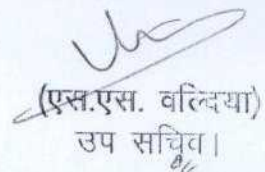 (एस.एस. वल्दिया)
उप सचिव।